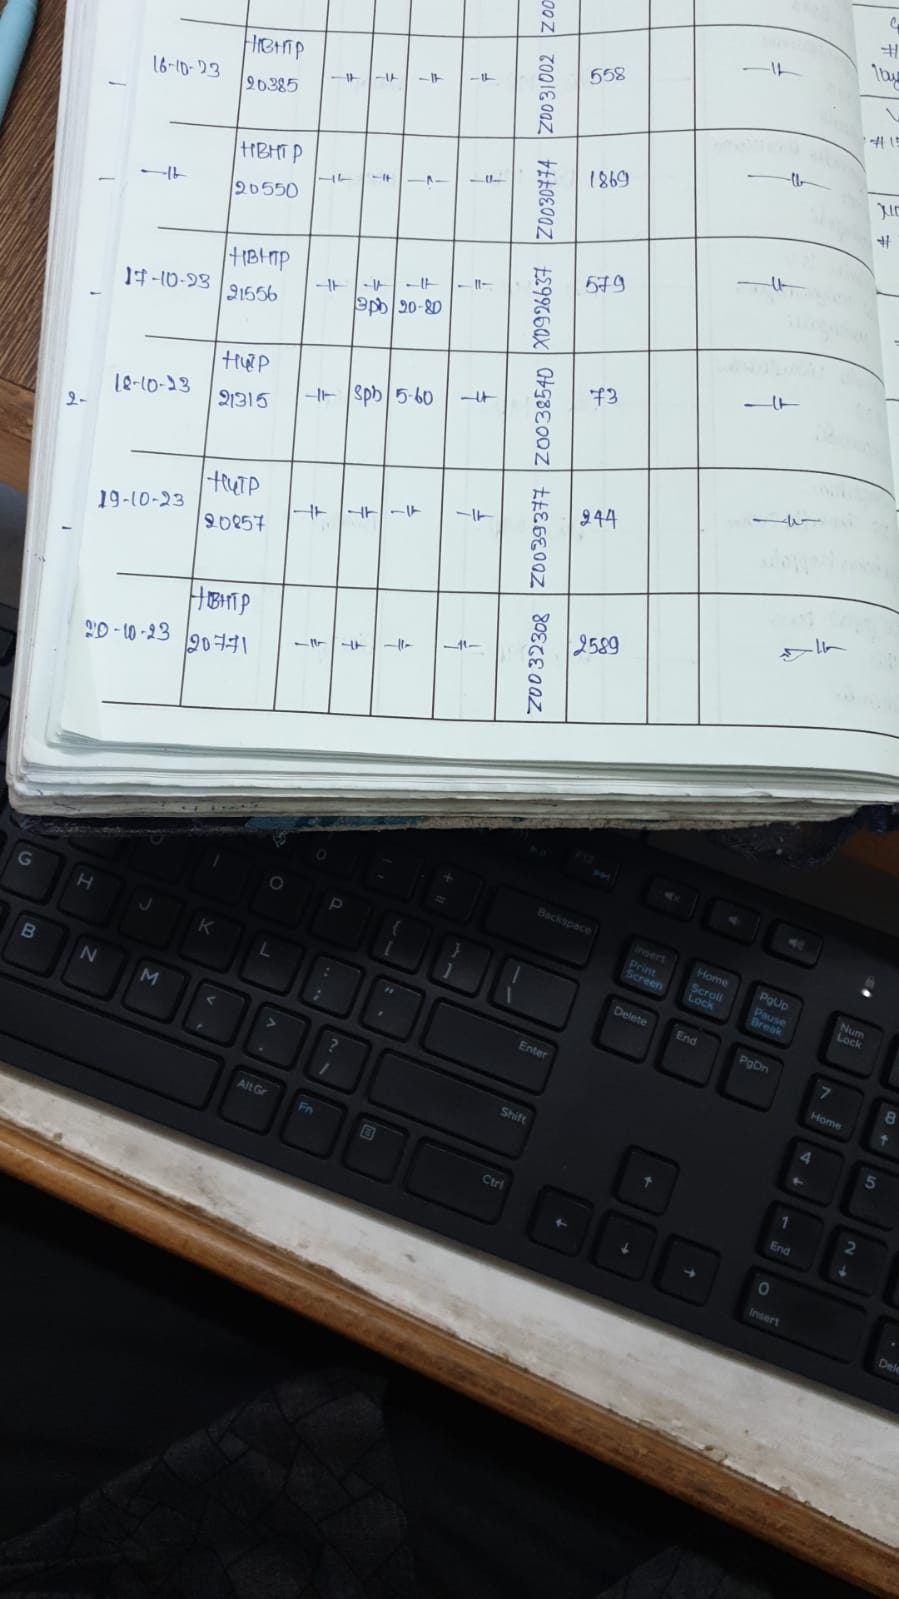 Z00
16-10-23 HBHTP 20385 -||- -||- -||- -||- Z0031002 558 -||-
-||- HBHTP 20550 -||- -||- -||- -||- Z0030774 1869 -||-
17-10-23 HBHTP 21556 -||- -||- 3pb -||- 20-80 -||- X0926637 579 -||-
2- 18-10-23 21315 -||- 3pb 5-60 -||- Z0038540 73 -||-
19-10-23 20857 -||- -||- -||- -||- Z0039377 244 -||-
20-10-23 HBHTP 20771 -||- -||- -||- -||- Z0032308 2589 -||-
G H J I O P { [ } ] | \ - _ + = Backspace
B N M K L : ; " ' Enter
< , > . ? / Shift
AltGr Fn Ctrl
Insert Print Screen Home Scroll Lock PgUp Pause Break Num Lock
Delete End PgDn 7 Home 8
4 5
1 End 2
0 Insert Del